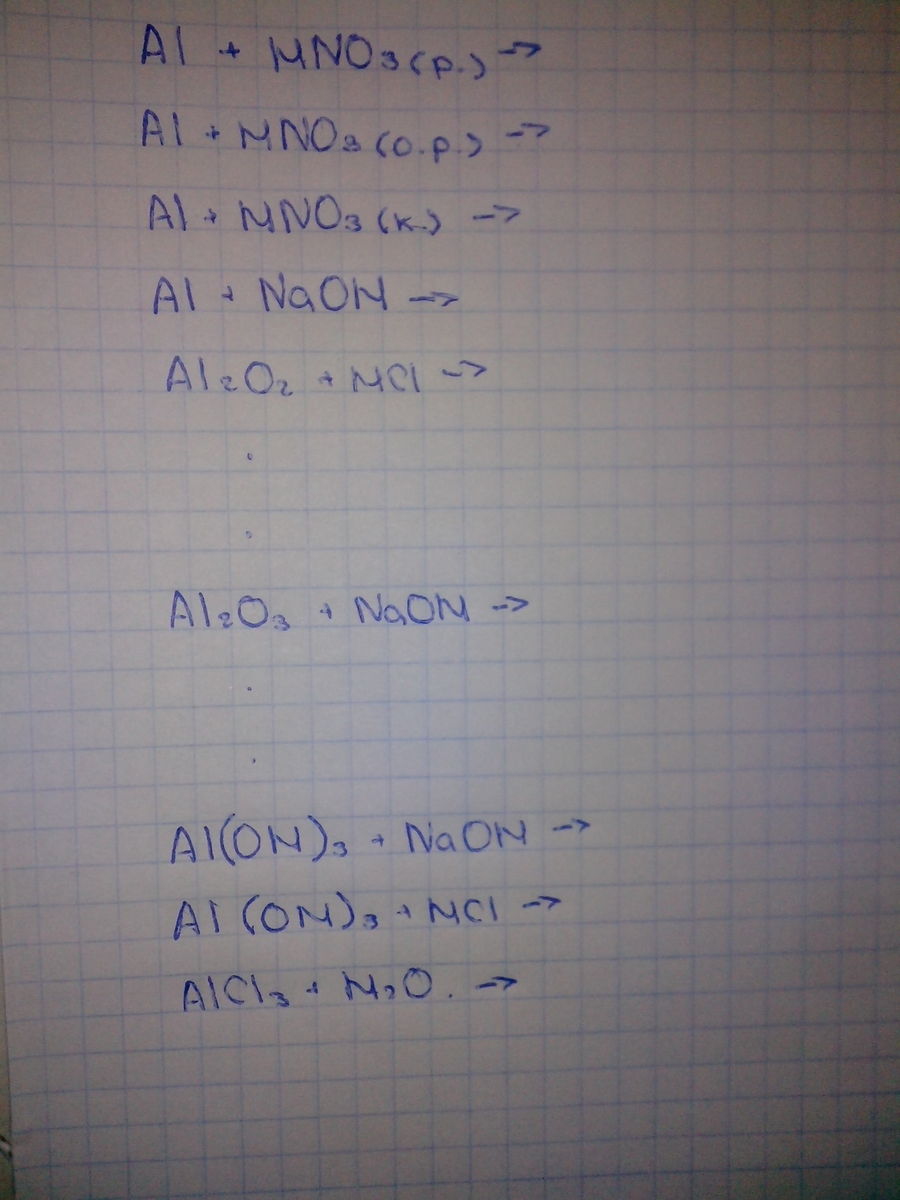 Al + HNO₃(р.) →
Al + HNO₃(о.р.) →
Al + HNO₃(к.) →
Al + NaOH →
Al₂O₂ + HCl →
.
.
Al₂O₃ + NaOH →
.
.
Al(OH)₃ + NaOH →
Al(OH)₃ + HCl →
AlCl₃ + H₂O. →